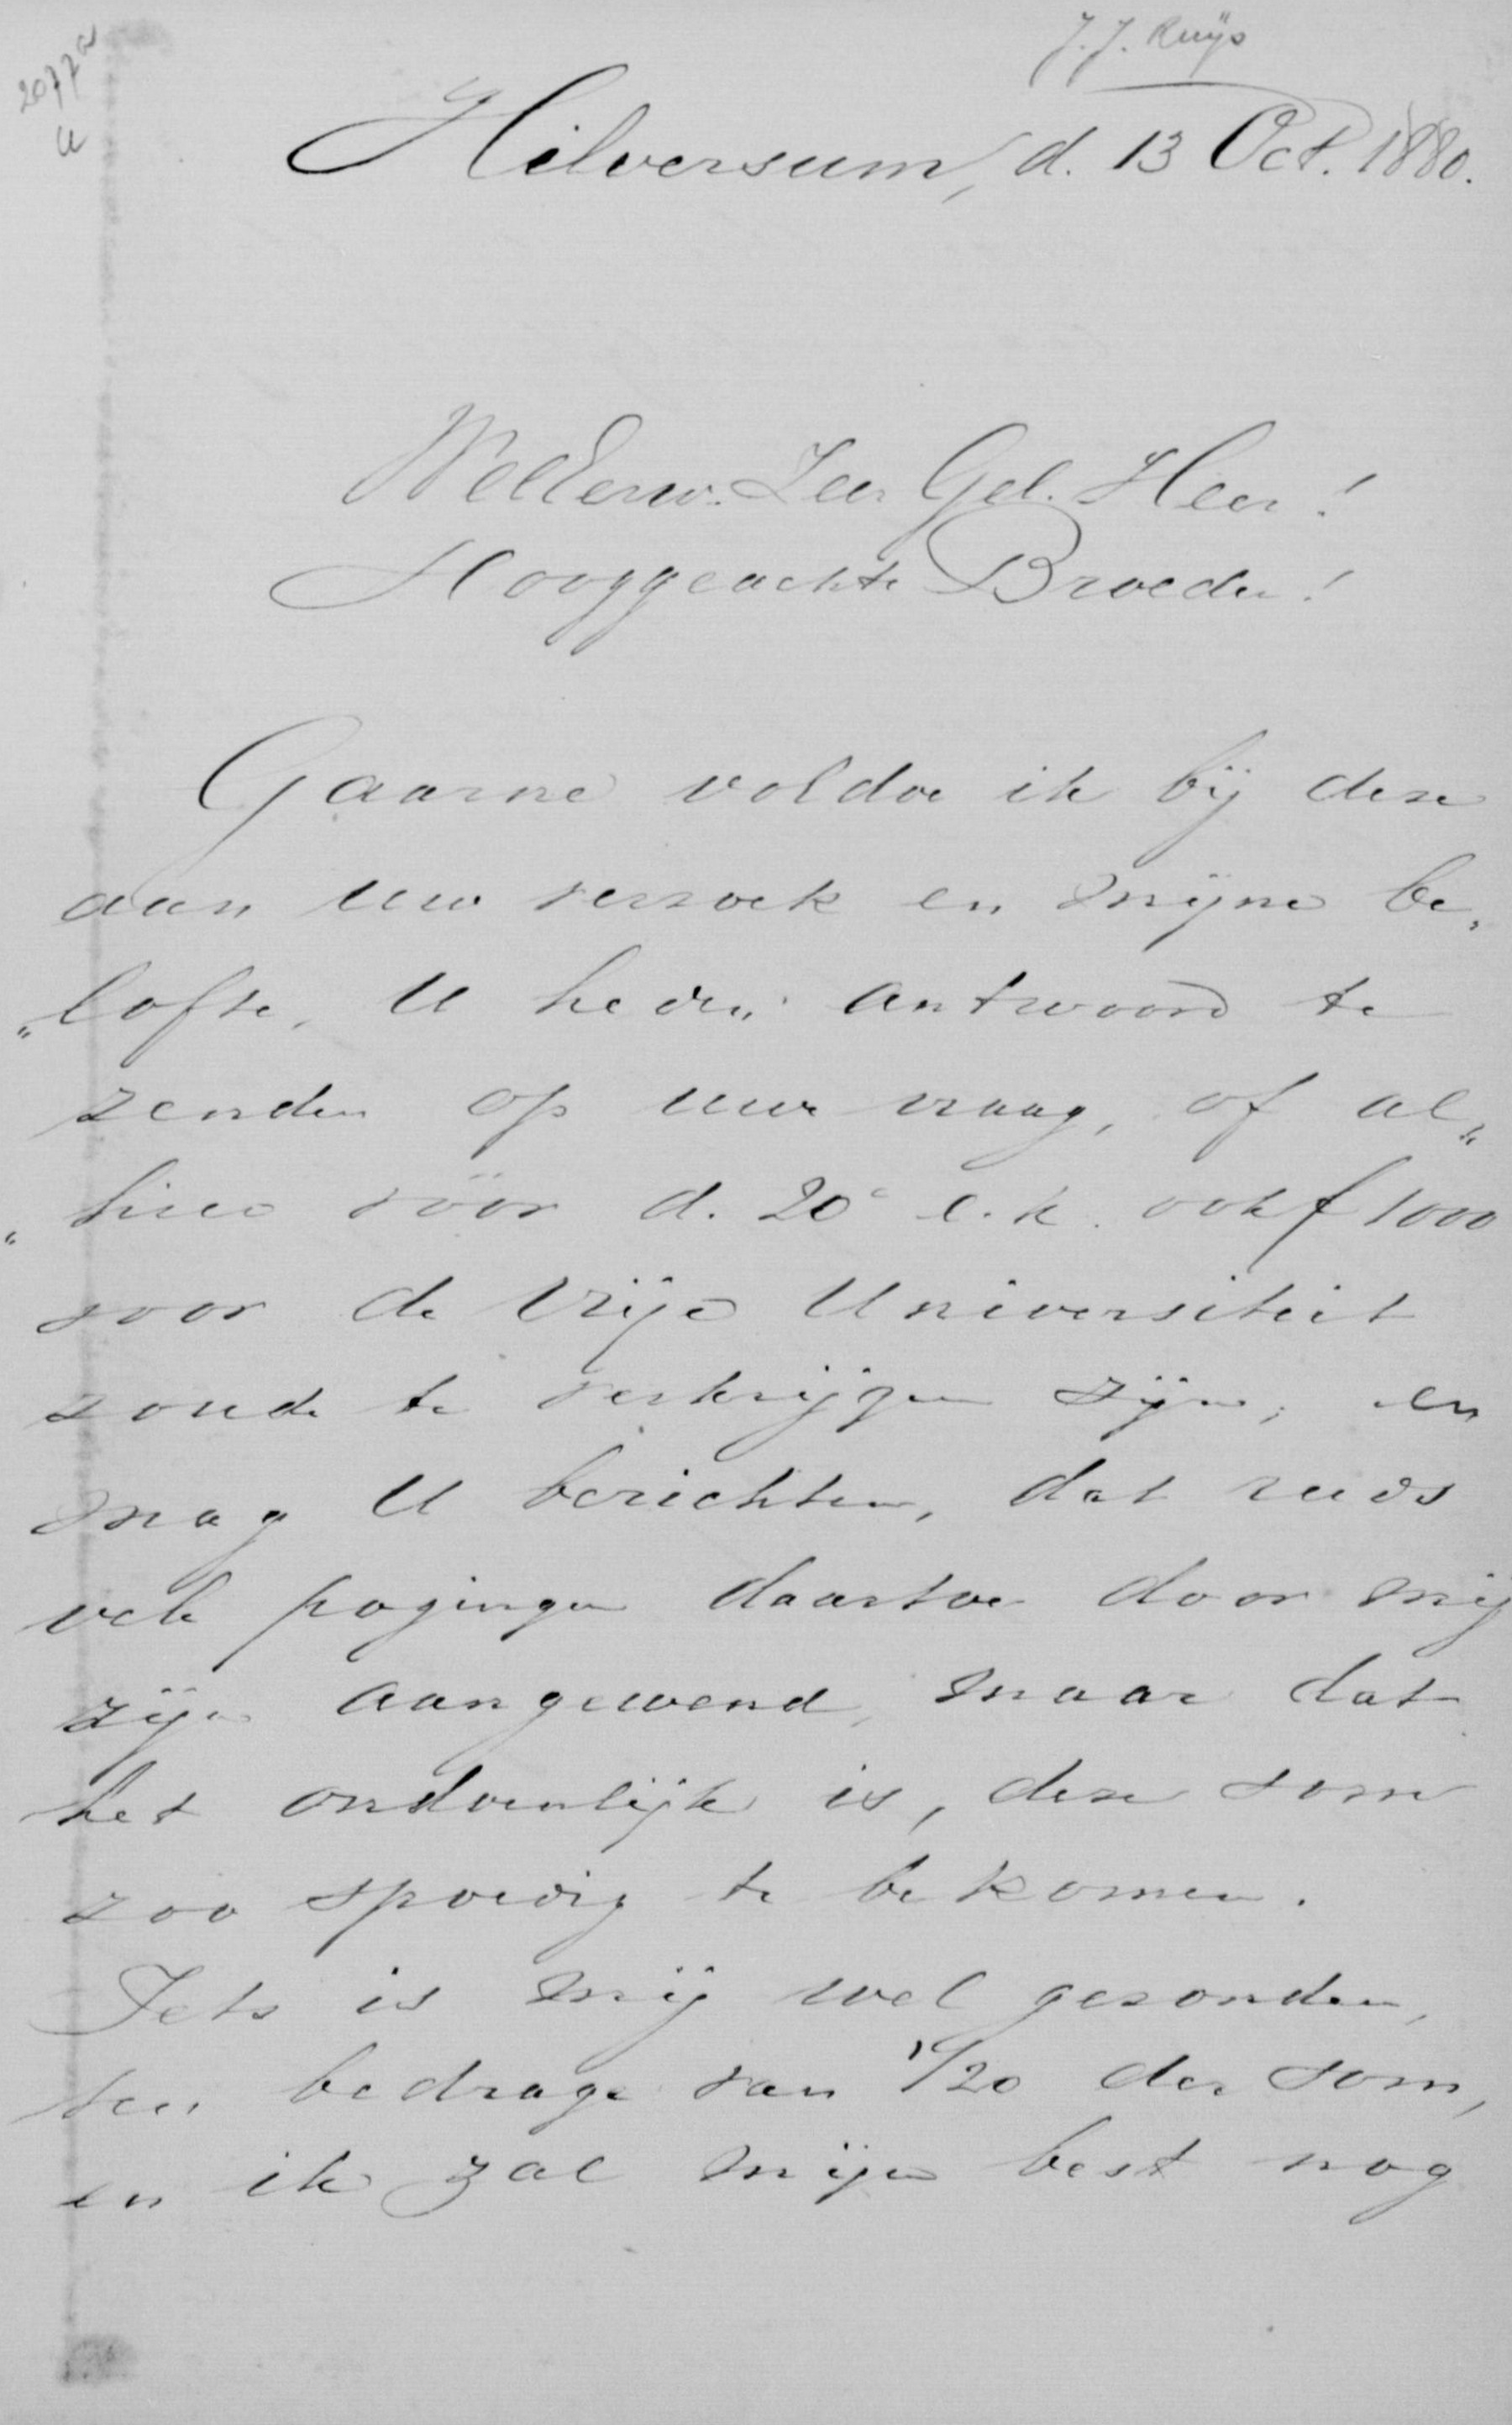 J. J. Ruijs
2077a
Hilversum, d. 13 Oct. 1880.
WelEerw. Zeer Gel. Heer!
Hooggeachte Broeder!
Gaarne voldoe ik bij deze
aan uw verzoek en mijne be„
„lofte, U heden antwoord te
zenden op uwe vraag, of al„
„hier vóór d. 20e e.k. ook f 1000
voor de Vrije Universiteit
zoude te verkrijgen zijn; en
mag U berichten, dat reeds
vele pogingen daartoe door mij
zijn aangewend, maar dat
het ondoenlijk is, deze som
zoo spoedig te bekomen.
Iets is mij wel gezonden,
ten bedrage van 1/20 der som,
en ik zal mijn best nog